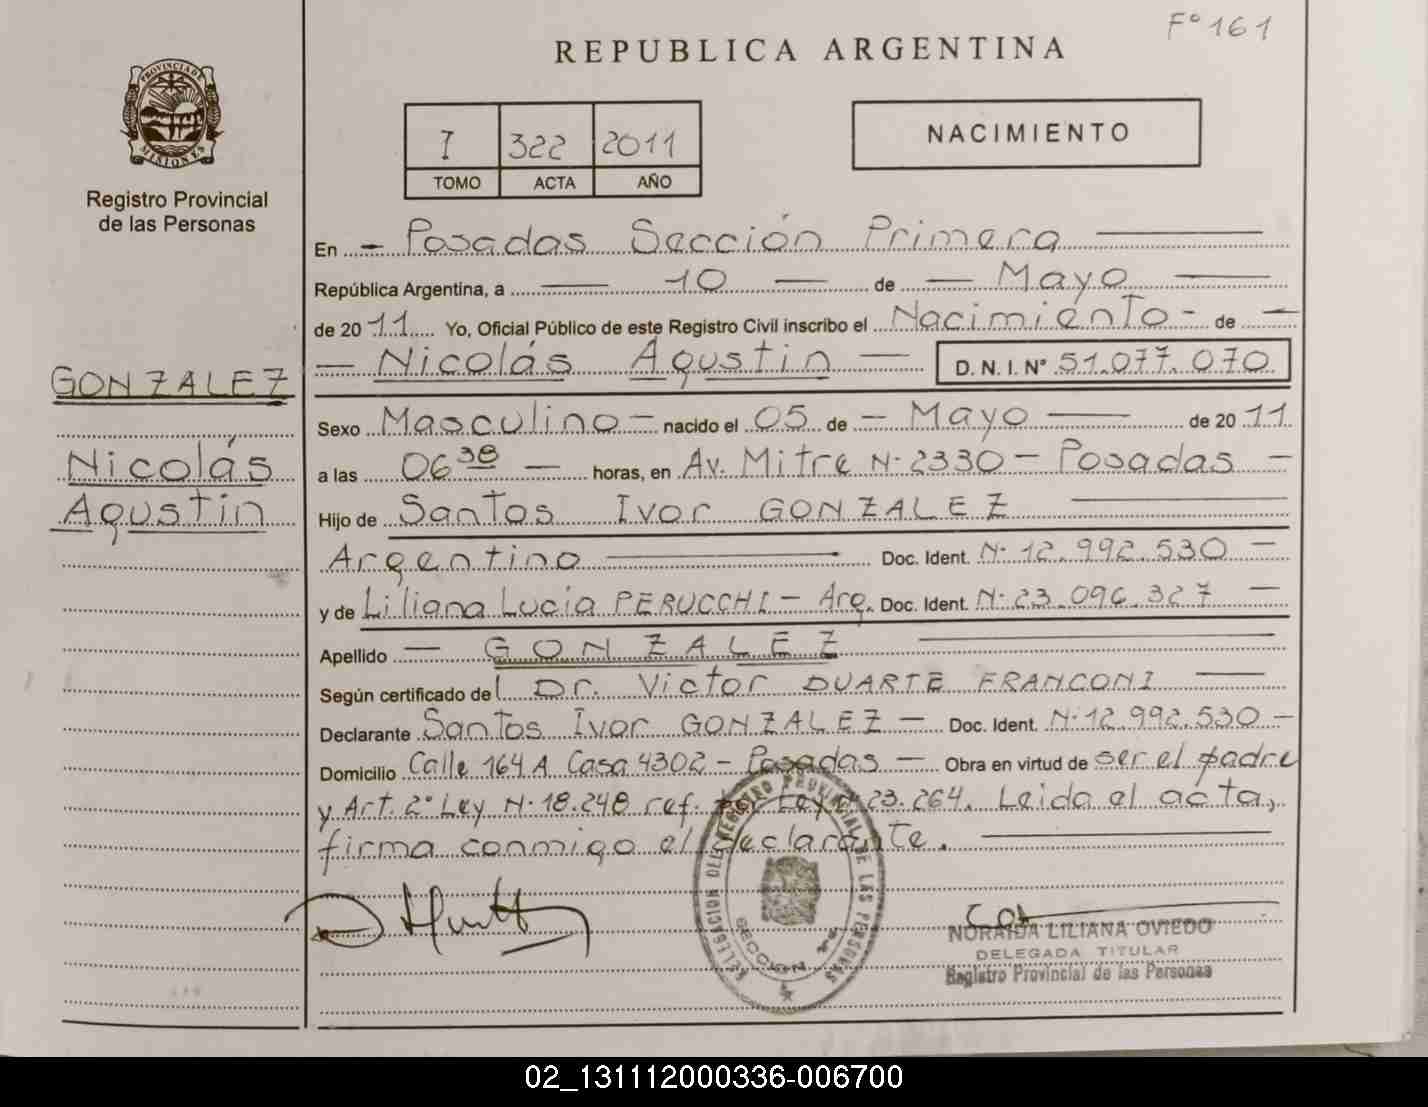 Fº 161
REPUBLICA ARGENTINA
PROVINCIA DE
MISIONES
Registro Provincial
de las Personas
I 322 2011
TOMO ACTA AÑO
NACIMIENTO
En - Posadas Sección Primera
República Argentina, a 10 de - Mayo
de 2011 Yo, Oficial Público de este Registro Civil inscribo el Nacimiento - de -
- Nicolás Agustin - D. N. I. Nº 51.077.070
GONZALEZ
Nicolás
Agustin
Sexo Masculino - nacido el 05 de - Mayo de 2011
a las 06 38 - horas, en Av. Mitre N· 2330 - Posadas -
Hijo de Santos Ivor GONZALEZ
Argentino Doc. Ident. N· 12.992.530 -
y de Liliana Lucia PERUCCHI - Arg. Doc. Ident. N· 23.096.327 -
Apellido - GONZALEZ
Según certificado del Dr. Victor DUARTE FRANCONI
Declarante Santos Ivor GONZALEZ - Doc. Ident. N· 12.992.530 -
Domicilio Calle 164 A Casa 4302 - Posadas - Obra en virtud de ser el padre
y Art. 2º Ley N· 18.248 ref. por Ley 23.264. Leida el acta,
firma conmigo el declarante.
DELEGACION DEL REGISTRO PROVINCIAL DE LAS PERSONAS
SECCION 1ª
NORAIDA LILIANA OVIEDO
DELEGADA TITULAR
Registro Provincial de las Personas
02_131112000336-006700